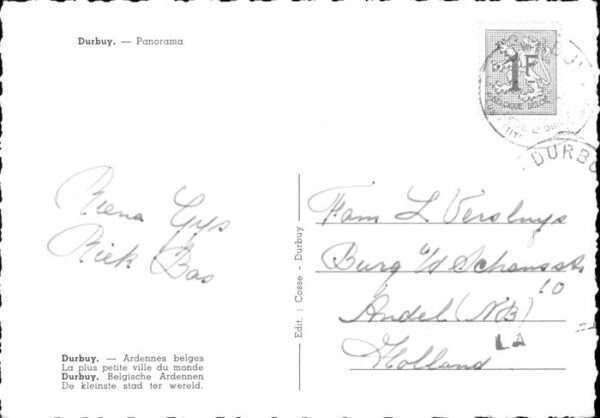 Durbuy. — Panorama
1F
BELGIQUE BELGIE
DURBU
Riena Gijs
Riek Bas
Fam L Versluijs
Burg v/d Schansstr
10
Andel (NB)
LA
Holland
Edit. : Cosse - Durbuy
Durbuy. — Ardennes belges
La plus petite ville du monde
Durbuy. Belgische Ardennen
De kleinste stad ter wereld.